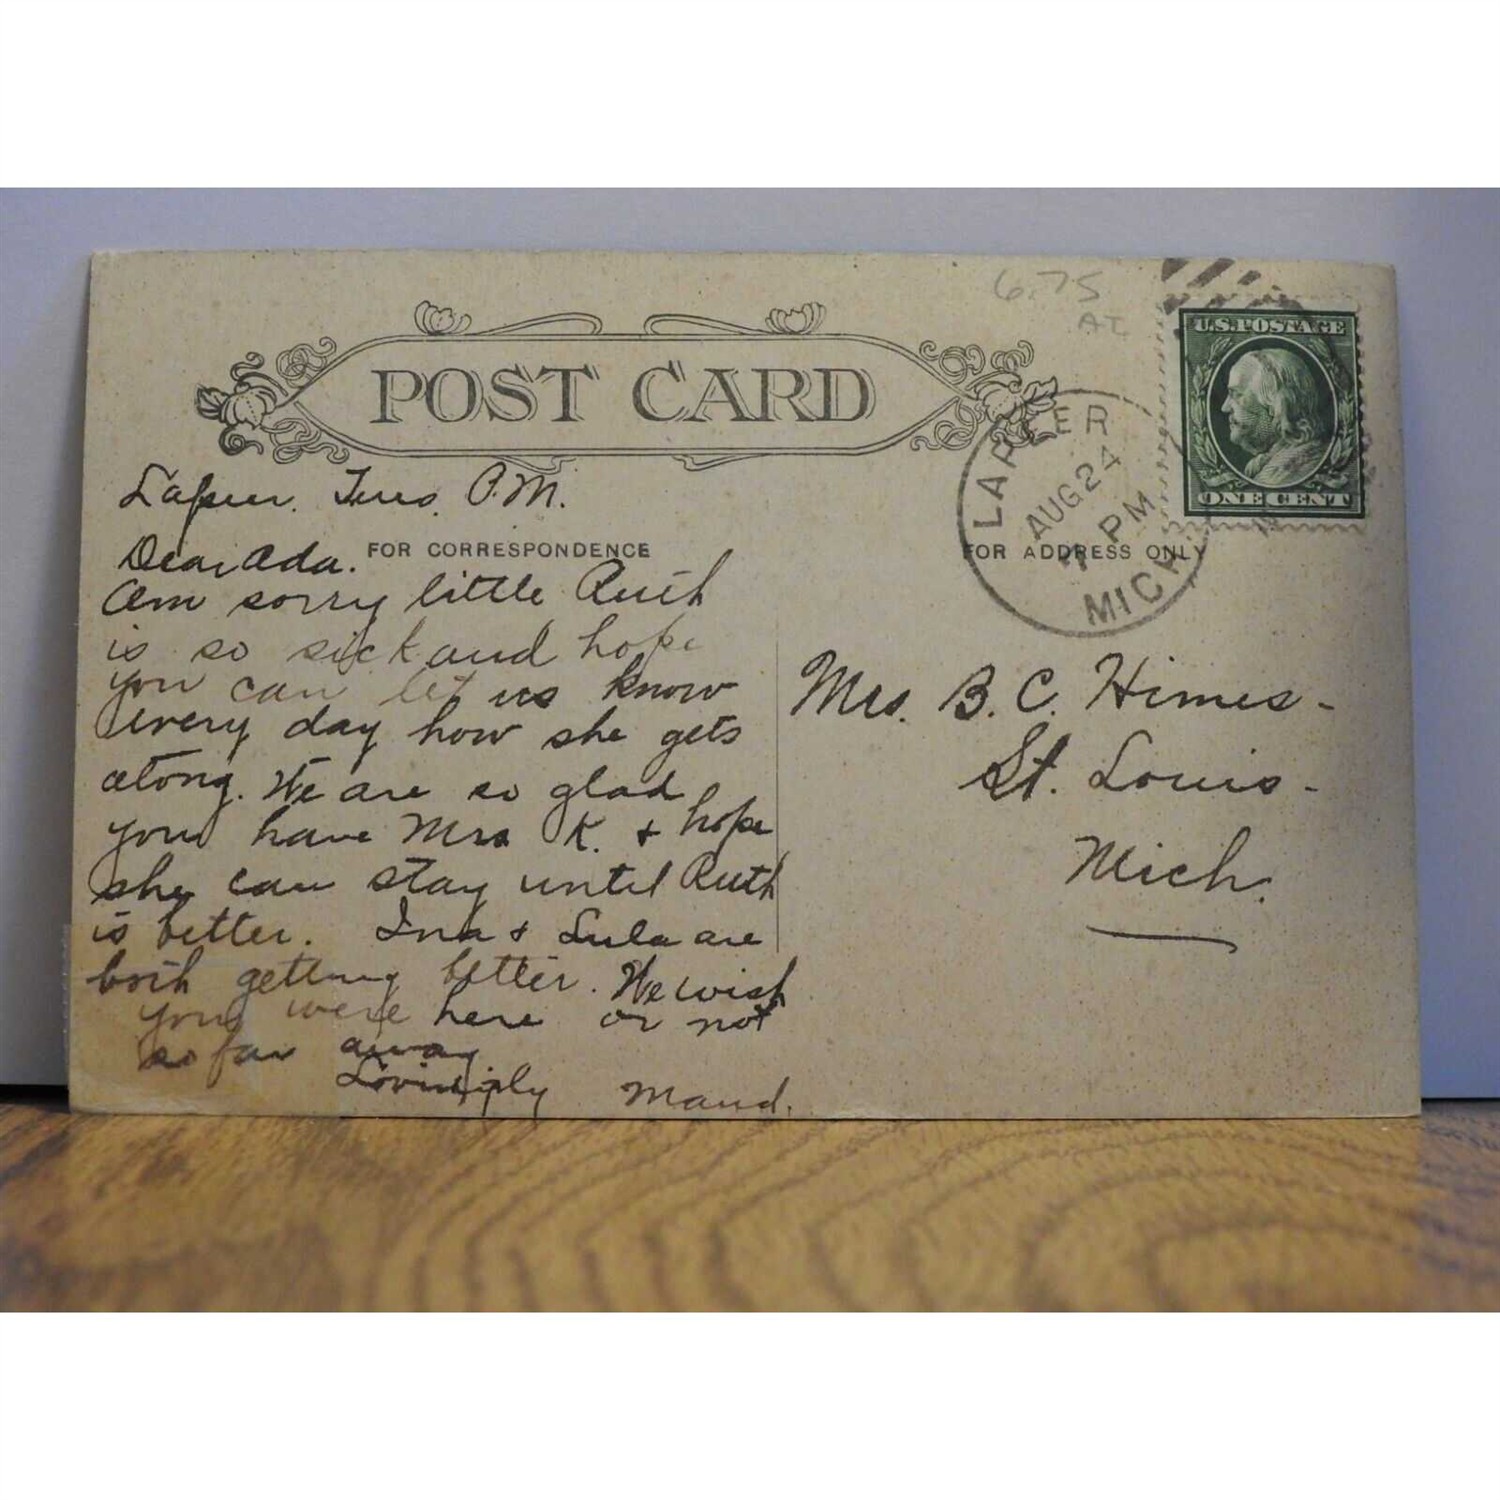 6.75
AT
U.S. POSTAGE
ONE CENT
POST CARD
LAPEER
AUG 24
7 PM
MICH.
Lapeer. Tues. P.M.
FOR CORRESPONDENCE
FOR ADDRESS ONLY
Dear Ada.
Am sorry little Ruth
is so sick and hope
you can let us know
every day how she gets
along. We are so glad
you have Mrs K. + hope
she can stay until Ruth
is better. Ina + Lula are
both getting better. We wish
you were here or not
so far away
Lovingly Maud.
Mrs. B. C. Himes -
St. Louis -
Mich.